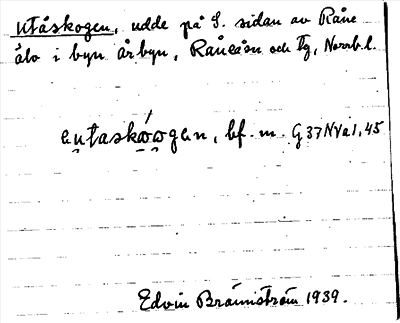 Utåskogen, udde på S. sidan av Råne
älv i byn Årbyn, Råneåsn och tg, Norrb.l.
eutaskωωgen, bf. m. G 37 N Va 1, 45
Edvin Brännström 1939.